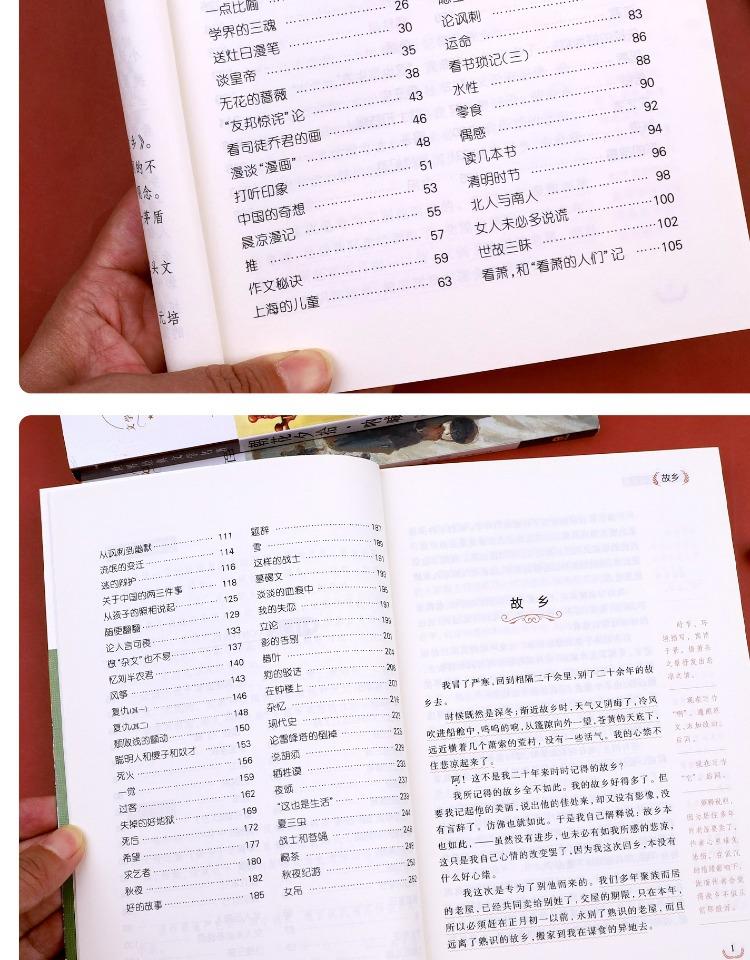 一点比喻 26
学界的三魂 30
送灶日漫笔 35
谈皇帝 38
无花的蔷薇 43
“友邦惊诧”论 46
看司徒乔君的画 48
漫谈“漫画” 51
打听印象 53
中国的奇想 55
晨凉漫记 57
推 59
作文秘诀 63
上海的儿童
论讽刺 83
运命 86
看书琐记(三) 88
水性 90
零食 92
偶感 94
读几本书 96
清明时节 98
北人与南人 100
女人未必多说谎 102
世故三昧 105
看萧,和“看萧的人们”记
从讽刺到幽默 111
流氓的变迁 114
谜的辩护 116
关于中国的两三件事 118
从孩子的照相说起 125
脸面翻翻 129
论人言可畏 133
做“杂文”也不易 137
忆刘半农君 140
风筝 143
复仇(其一) 146
复仇(其二) 148
颓败线的颤动 150
聪明人和傻子和奴才 153
死火 156
一觉 159
过客 162
失掉的好地狱 169
死后 172
希望 177
求乞者 180
秋夜 182
好的故事 185
题辞 187
雪 189
这样的战士 191
墓碣文 193
淡淡的血痕中 195
我的失恋 197
立论 199
影的告别 201
腊叶 204
狗的驳诘 206
在钟楼上
杂忆
现代史
论雷峰塔的倒掉
说胡须
牺牲谟
夜颂
“这也是生活”
夏三虫
战士和苍蝇
喝茶
秋夜纪游
女吊 252
故乡
故 乡
我冒了严寒,回到相隔二千余里,别了二十余年的故
乡去。
时候既然是深冬;渐近故乡时,天气又阴晦了,冷风
吹进船舱中,呜呜的响,从篷隙向外一望,苍黄的天底下,
远近横着几个萧索的荒村,没有一些活气。我的心禁不
住悲凉起来了。
阿!这不是我二十年来时时记得的故乡?
我所记得的故乡全不如此。我的故乡好得多了。但
要我记起他的美丽,说出他的佳处来,却又没有影像,没
有言辞了。仿佛也就如此。于是我自己解释说:故乡本
也如此,——虽然没有进步,也未必有如我所感的悲凉,
这只是我自己心情的改变罢了,因为我这次回乡,本没有
什么好心绪。
我这次是专为了别他而来的。我们多年聚族而居
的老屋,已经共同卖给别姓了,交屋的期限,只在本年,
所以必须赶在正月初一以前,永别了熟识的老屋,而且
远离了熟识的故乡,搬家到我在谋食的异地去。
1